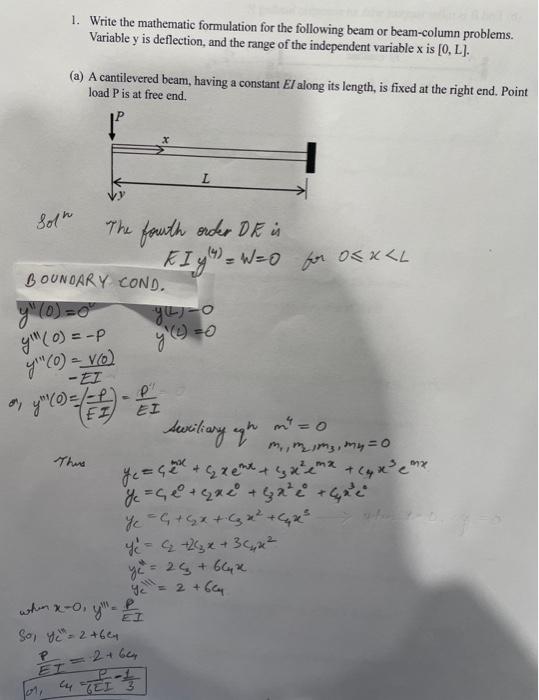 1. Write the mathematic formulation for the following beam or beam-column problems.
Variable y is deflection, and the range of the independent variable x is [0, L].
(a) A cantilevered beam, having a constant EI along its length, is fixed at the right end. Point
load P is at free end.
P
x
L
y
Solⁿ The fourth order DE is
EIy⁽⁴⁾ = W=0 for 0≤x<L
BOUNDARY COND.
y"(0)=0 y(L)=0
y'''(0) = -P y'(L)=0
y'''(0) = V(0)/-EI
or, y'''(0)=-(-P/EI) = P/EI
Auxiliary eqn m⁴ = 0
m₁, m₂, m₃, m₄ = 0
Thus
y_c = c₁e^mx + c₂xe^mx + c₃x²e^mx + c₄x³e^mx
y_c = c₁e⁰ + c₂xe⁰ + c₃x²e⁰ + c₄x³e⁰
y_c = c₁ + c₂x + c₃x² + c₄x³
y_c' = c₂ + 2c₃x + 3c₄x²
y_c'' = 2c₃ + 6c₄x
y_c''' = 2 + 6c₄
when x=0, y''' = P/EI
So, y_c''' = 2+6c₄
P/EI = 2+6c₄
or, c₄ = P/6EI - 1/3